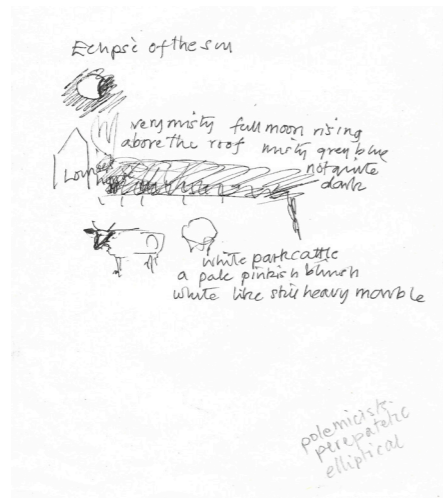 Eclipse of the sun
very misty full moon rising
above the roof misty grey blue
not quite
dark
white park cattle
a pale pinkish blueish
white like still heavy marble
polemicist
perepatetic
elliptical